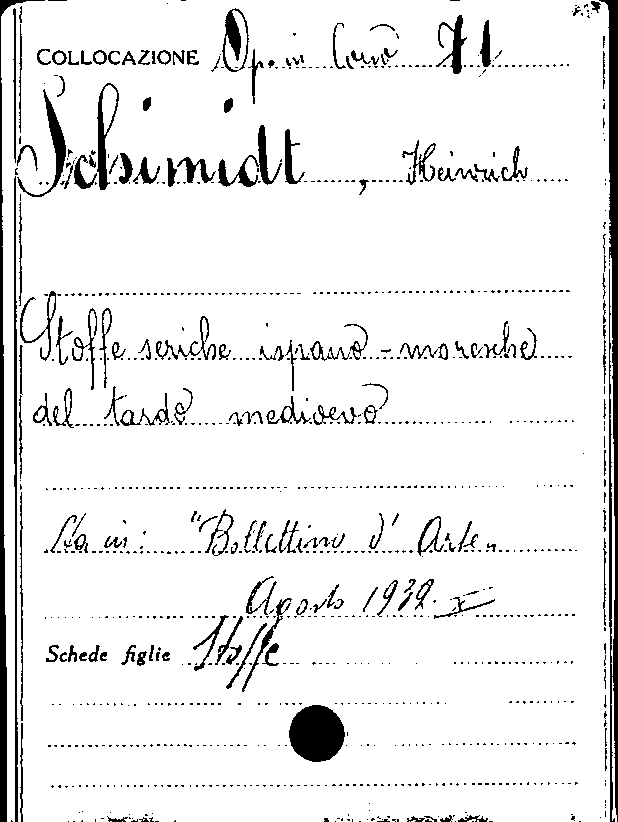 COLLOCAZIONE Op. in Corso 71
Schimidt, Heinrich
Stoffe seriche ispano-moresche
del tardo medioevo
Sta in: "Bollettino d'Arte"
Agosto 1932. X
Schede figlie Stoffe